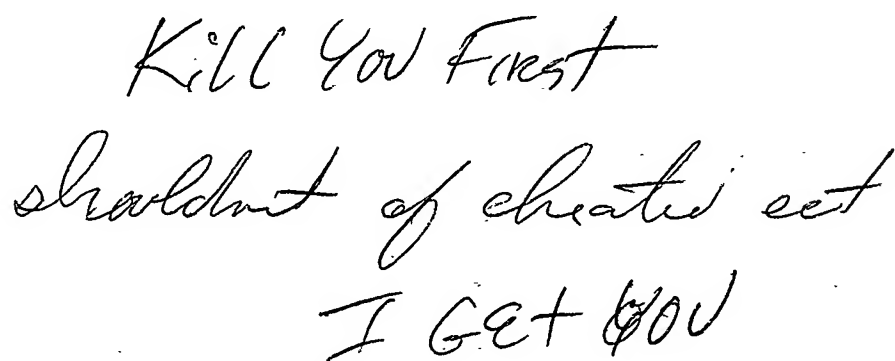 Kill You First
shouldnt of cheated eet
I Get YOU